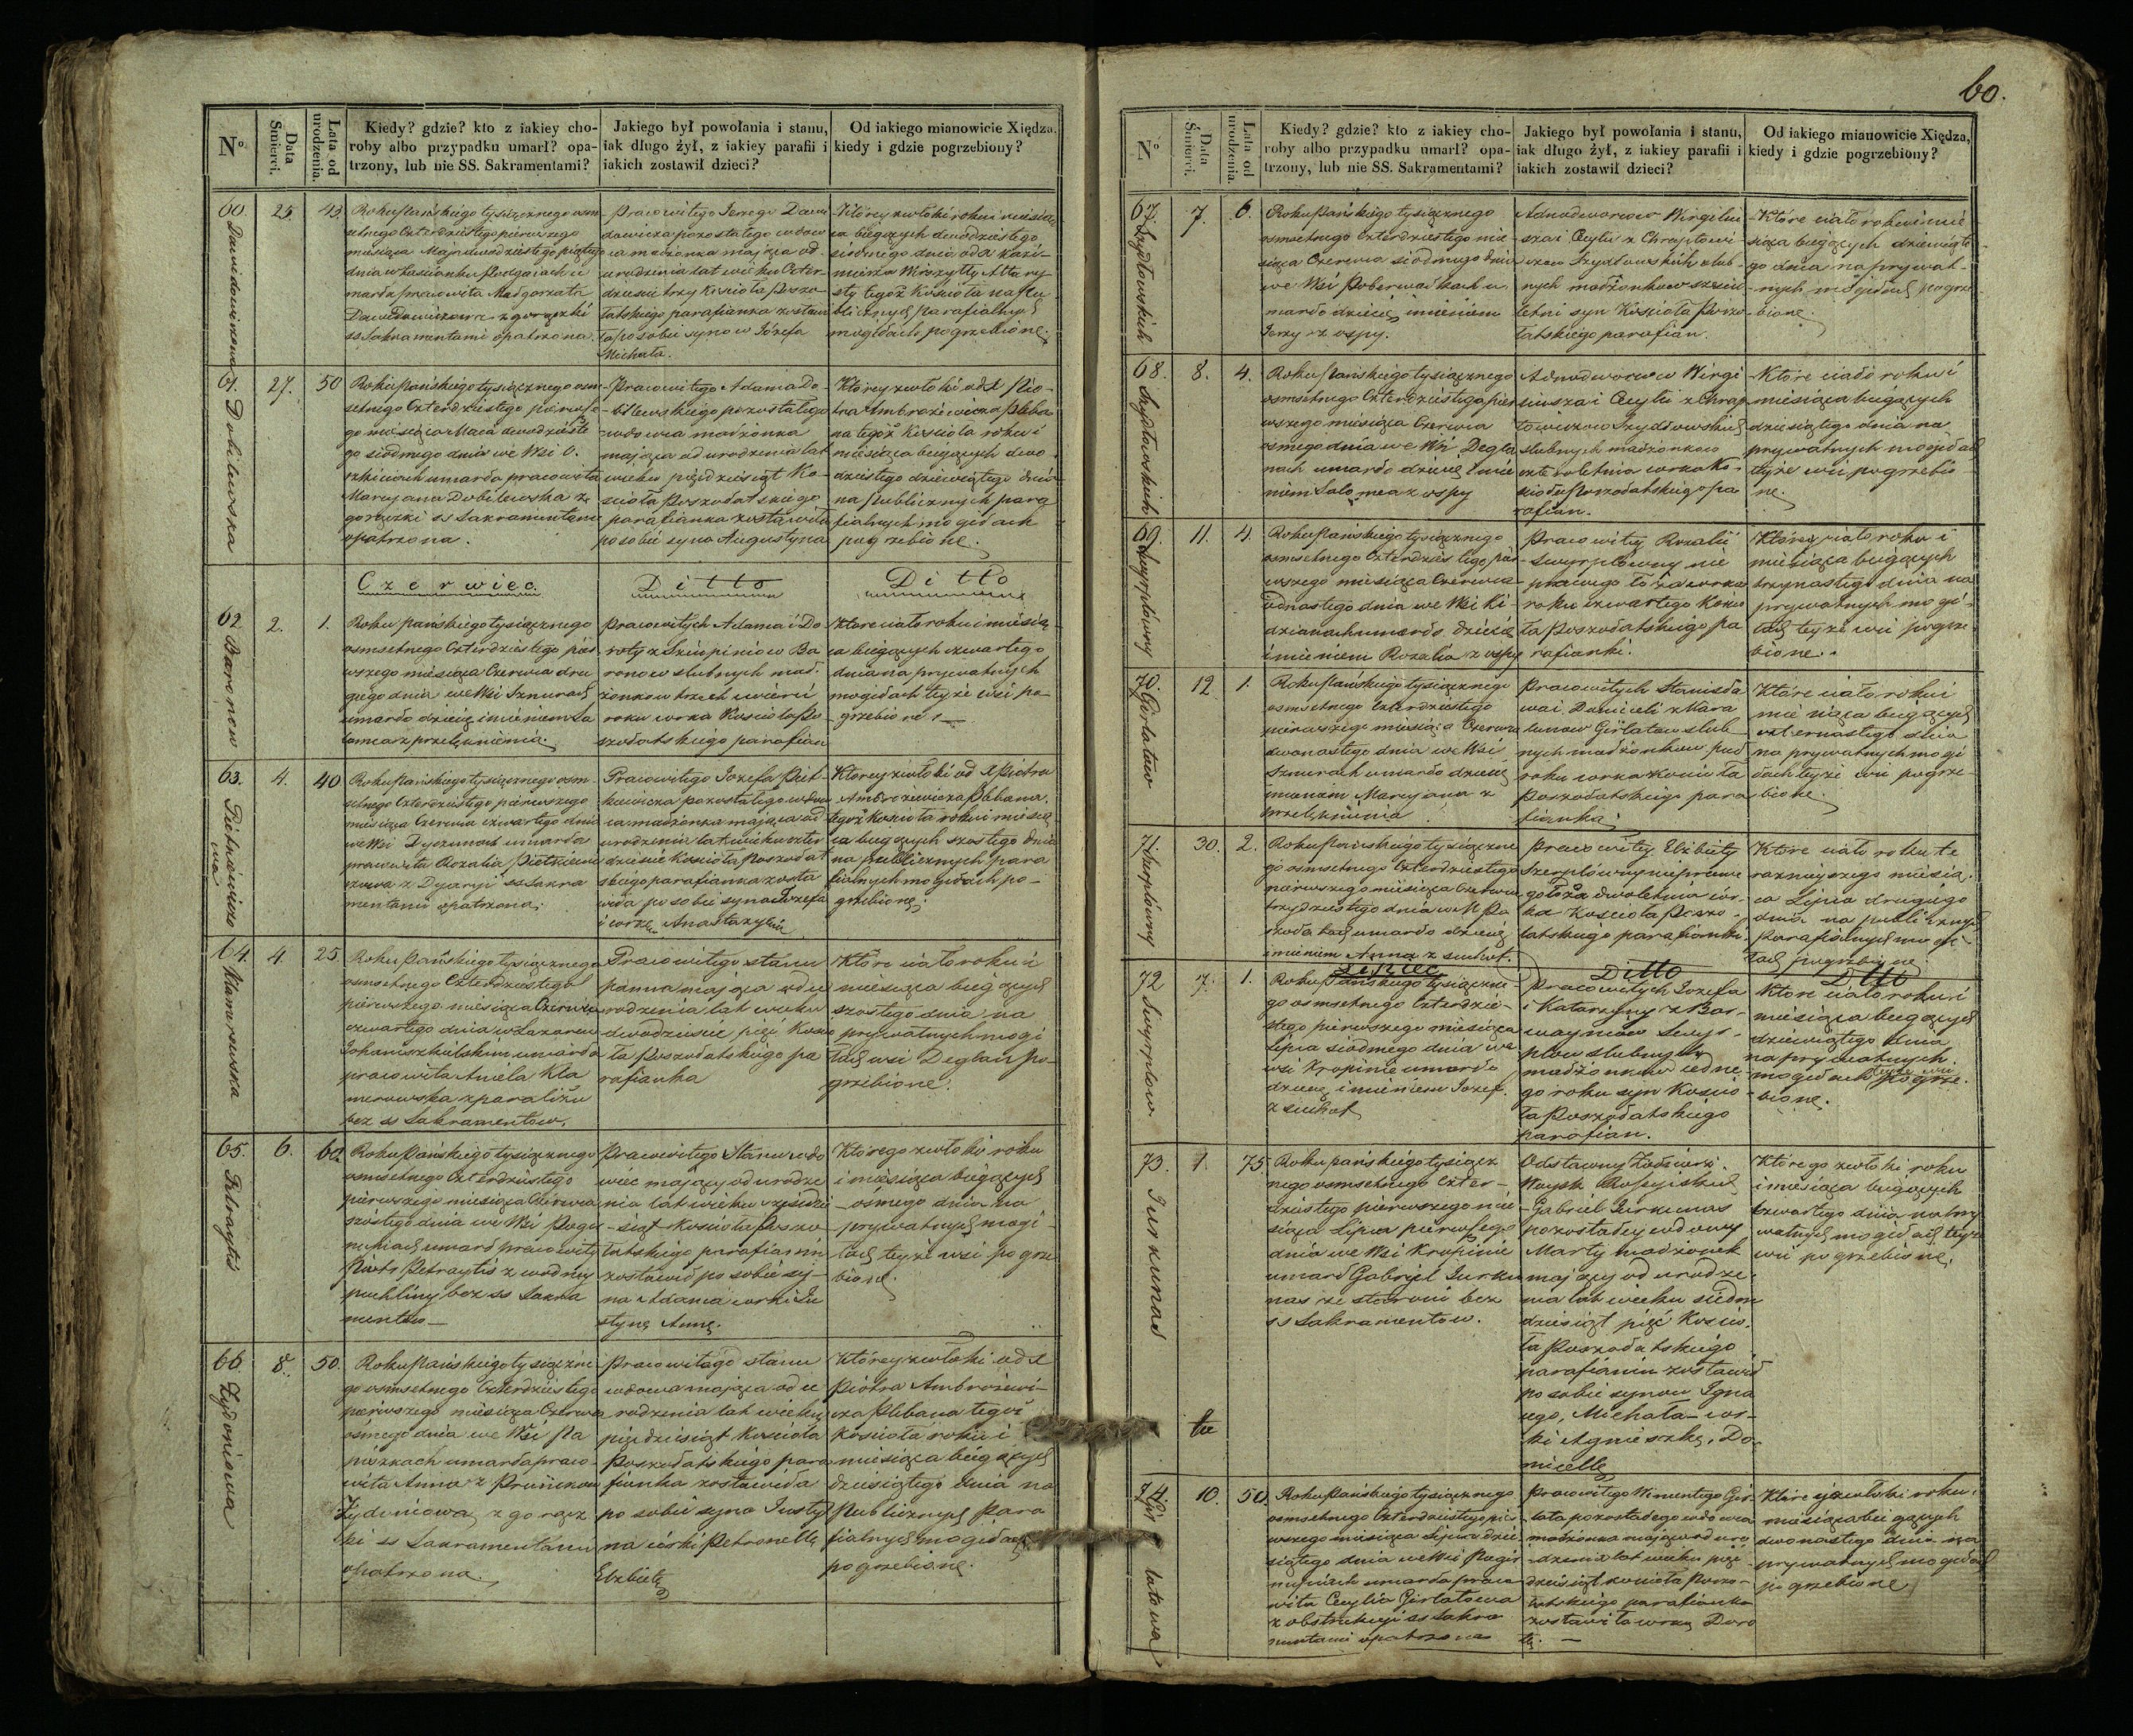 N°
Data Śmierci.
Lata od urodzenia.
Kiedy? gdzie? kto z iakiey cho-
roby albo przypadku umarł? opa-
trzony, lub nie SS. Sakramentami?
Jakiego był powołania i stanu,
iak długo żył, z iakiey parafii i
iakich zostawił dzieci?
Od iakiego mianowicie Xiędza,
kiedy i gdzie pogrzebiony?
60.
Dawidowiczowa
25.
43.
Roku Pańskiego tysiącznego osm
setnego Czterdziestego pierwszego
miesiąca Maja dwudziestego piątego
dnia w Zaścianku Podgajach u
marła pracowita Małgorzata
Dawidowiczowa z gorączki
ss Sakramentami opatrzona
Pracowitego Jerzego Dawi
dowicza pozostałego wdow
ca małżonka mająca od
urodzenia lat wieku Czter
dzieście trzy Kościoła Poszo
łatskiego parafianka zostawi
ła po sobie synow Józefa
Michała.
Ktorey zwłoki roku i miesią
ca bieżących dwudziestego
siodmego dnia od X Kazi-
mierza Altary
sty tegoż Kościoła na Pu
blicznych parafialnych
mogiłach pogrzebione.
61.
Dobilewska
27.
50
Roku Pańskiego tysiącznego osm
setnego Czterdziestego pierwsze
go miesiąca Maca dwudzieste
go siodmego dnia we Wsi O.
szkiniach umarła pracowita
Maryana Dobilewska z
gorączki ss Sakramentami
opatrzona.
Pracowitego Adama Do-
bilewskiego pozostałego
wdowca małżonka
mająca od urodzenia lat
wieku pięćdziesiąt Ko-
ścioła Poszołatskiego
parafianka zostawiła
po sobie syna Augustyna
Ktorey zwłoki od X Pio-
tra Ambrożewicza Pleba
na tegoż Kościoła roku i
miesiąca bieżących dwu
dziestego dziewiątego dnia
na publicznych para
fialnych mogiłach
pogrzebione.
Czerwiec.
Ditto
Ditto
62.
Baronow
2.
1.
Roku pańskiego tysiącznego
osmsetnego Czterdziestego pier
wszego miesiąca Czerwca dru
giego dnia we Wsi Sznurach
umarło dziecię imieniem Sa
lomea z przelęknienia.
Pracowitych Adama i Do
roty z Szlupiniow Ba
ronow slubnych mał.
żonkow trzech
roku corka Kościoła Po
szołatskiego parafian
Ktore ciało roku i miesią
ca bieżących czwartego
dnia na prywatnych
mogiłach teyże wsi po
grzebione
63.
Pietkiewiczo
wa
4.
40
Roku Pańskiego tysiącznego osm-
setnego Czterdziestego pierwszego
miesiąca Czerwca czwartego dnia
we Wsi umarła
pracowita Rozalia Pietkiewi
czowa z Dyaryi ss Sakra
mentami opatrzona.
Pracowitego Jozefa Piet-
kiewicza pozostałego wdow
ca małżonka mająca od
urodzenia lat wieku czter
dzieście Kościoła Poszołat
skiego parafianka zosta
wiła po sobie syna Jozefa
i corkę Anastazyią
Ktorey zwłoki od X Piotra
Ambrożewicza Plebana.
tegoż Kościoła roku i miesią
ca bieżących szostego dnia
na publicznych para
fialnych mogiłach po-
grzebione.
64.
Klamerowska
4.
25
Roku Pańskiego tysiącznego
osmsetnego Czterdziestego
pierwszego miesiąca Czerwca
czwartego dnia w Lazarecie
Johaniszkielskim umarła
pracowita Aniela Kla
merowska z paraliżu
bez ss Sakramentow.
Pracowitego stanu
panna mająca od u
rodzenia lat wieku
dwadzieście pięć Kościo
ła Poszołatskiego pa
rafianka
Ktore ciało roku i
miesiąca bieżących
szostego dnia na
prywatnych mogi
łach wsi Deglan po-
grzebione.
65.
Petraytis
6.
60.
Roku Pańskiego tysiącznego
osmsetnego Czterdziestego
pierwszego miesiąca Czerwca
szostego dnia we Wsi
umarł pracowity
Piotr Petraytis z wodney
puchliny bez ss Sakra
mentow
Pracowitego Stanu wdo
wiec mający od urodze
nia lat wieku sześćdzie
siąt Kościoła Poszo
łatskiego parafianin
zostawił po sobie sy-
na Adama corki Ju
stynę Annę.
Którego zwłoki roku
i miesiąca bieżących
ósmego dnia na
prywatnych mogi-
łach teyże wsi pogrze
bione.
66
Zydoniowa
8.
50.
Roku Pańskiego tysiączne
go osmsetnego Czterdziestego
pierwszego miesiąca Czerwca
ósmego dnia we Wsi Pa
piwzkach umarła praco-
wita Anna z
Żydoniowa z gorącz
ki ss Sakramentami
opatrzona.
Pracowitego stanu
wdowa mająca od u
rodzenia lat wieku
pięćdziesiąt Kościoła
Poszołatskiego para
fianka zostawiła
po sobie syna Justy
na córki Petronellę
Elżbietę
Ktorey zwłoki od X
Piotra Ambrożewi-
cza Plebana tegoż
Kościoła roku i
miesiąca bieżących
dziesiątego dnia na
Publicznych Para
fialnych mogiłach
pogrzebione.
60.
N°
Data Śmierci.
Lata od urodzenia.
Kiedy? gdzie? kto z iakiey cho-
roby albo przypadku umarł? opa-
trzony, lub nie SS. Sakramentami?
Jakiego był powołania i stanu,
iak długo żył, z iakiey parafii i
iakich zostawił dzieci?
Od iakiego mianowicie Xiędza,
kiedy i gdzie pogrzebiony?
67.
Szydłowskich
7.
6.
Roku Pańskiego tysiącznego
osmsetnego Czterdziestego mie
siąca Czerwca siodmego dnia
we Wsi Poberważkach u.
marło dziecię imieniem
Jerzy z ospy.
Adnodworcow Wirgiliu
sza i Cecylii z Chrapłowi
czow Szydłowskich slub-
nych małżonkow sześcio
letni syn Kościoła Poszo
łatskiego parafian.
Ktore ciało roku i mie
siąca bieżących dziewiąte
go dnia na prywat-
nych mogiłach pogrze
bione.
68.
Szydłowskich
8.
4.
Roku Pańskiego tysiącznego
osmsetnego Czterdziestego pier
wszego miesiąca Czerwca
osmego dnia we Wsi Degla
nach umarło dziecię imie
niem Salomea z ospy
Adnodworcow Wirgi
liusza i Cecylii z Chrap
łowiczow Szydłowskich
slubnych małżonkow
czteroletnia corka Ko-
ścioła Poszołatskiego pa
rafian.
Ktore ciało roku i
miesiąca bieżących
dziesiątego dnia na
prywatnych mogiłach
teyże wsi pogrzebio
ne.
69.
Szwyrplówny
11.
4.
Roku Pańskiego tysiącznego
osmsetnego Czterdziestego pier
wszego miesiąca Czerwca
iednastego dnia we Wsi Ki-
dzianach umarło dziecię
imieniem Rozalia z ospy
Pracowitey Rozalii
Szwyrplowny nie
prawego łoża corka
roku czwartego Kościo
ła Poszołatskiego pa
rafianki.
Ktorey ciało roku i
miesiąca bieżących
trzynastego dnia na
prywatnych mogi-
łach teyże wsi pogrze
bione.
70.
Girłatow
12.
1.
Roku Pańskiego tysiącznego
osmsetnego Czterdziestego
pierwszego miesiąca Czerwca
dwonastego dnia we Wsi
Sznurach umarło dziecię
imieniem Maryana z
przelęknienia
Pracowitych Stanisła
wa i Danieli z Kara
lunow Girłatow slub
nych małżonkow puł
roku corka Kościoła
Poszołatskiego para
fianka.
Ktore ciało roku i
miesiąca bieżących
czternastego dnia
na prywatnych mogi
łach teyże wsi pogrze-
bione.
71.
Szerplówny
30.
2.
Roku Pańskiego tysiączne
go osmsetnego Czterdziestego
pierwszego miesiąca Czerwca
trzydziestego dnia w M Po
szołatach umarło dziecię
imieniem Anna z suchot.
Pracowitey Elżbiety
Szerplówny nieprawe
go łoża dwoletnia cór-
ka Kościoła Poszo-
łatskiego parafianki.
Ktore ciało roku te
raznieyszego miesią.
ca Lipca drugiego
dnia na publicznych
Parafialnych mogi-
łach pogrzebione.
Lipiec
Ditto
Ditto
72
Swyrplow
7.
1.
Roku Pańskiego tysiączne-
go osmsetnego Czterdzie-
stego pierwszego miesiąca
Lipca siodmego dnia we
wsi Kropinie umarło
dziecię imieniem Jozef
z suchot
Pracowitych Jozefa
i Katarzyny z Bor-
wayniow Swyr-
plow slubnych
małżonkow iedne-
go roku syn Kościo
ła Poszołatskiego
parafian.
Ktore ciało roku i
miesiąca bieżących
dziewiątego dnia
na prywatnych
mogiłach teyże wsi pogrze-
bione.
73.
Jurkunas
1.
75
Roku pańskiego tysiącz
nego osmsetnego Czter-
dziestego pierwszego mie
siąca Lipca pierwszego
dnia we Wsi Kropinie
umarł Gabriel Jurku
nas ze starości bez
ss Sakramentow.
Odstawny Żołnierz.
Woysk Rossyiskich
Gabriel Jurkunas
pozostałey wdowy
Marty małżonek
mający od urodze-
nia lat wieku siedm
dziesiąt pięć Kościo.
ła Poszołatskiego
parafianin zostawił
po sobie synow Igna
cego, Michała cor-
ki Agnieszkę, Do-
micellę
Którego zwłoki roku
i miesiąca bieżących
czwartego dnia na pry
watnych mogiłach teyże
wsi pogrzebione.
74.
Girłatowa
10.
50.
Roku Pańskiego tysiącznego
osmsetnego Czterdziestego pier
wszego miesiąca Lipca dzie
siątego dnia we Wsi Pogir
nupiach umarła praco
wita Cecylia Girłatowa
z obstrukcyi ss Sakra
mentami opatrzona
Pracowitego Wincentego Gir
łata pozostałego wdowca
małżonka mająca od uro
dzenia lat wieku pięć
dziesiąt Kościoła Poszo-
łatskiego parafianka
zostawiła corkę Doro
tę.
Ktorey zwłoki roku i
miesiąca bieżących
dwonastego dnia na
prywatnych mogiłach
pogrzebione